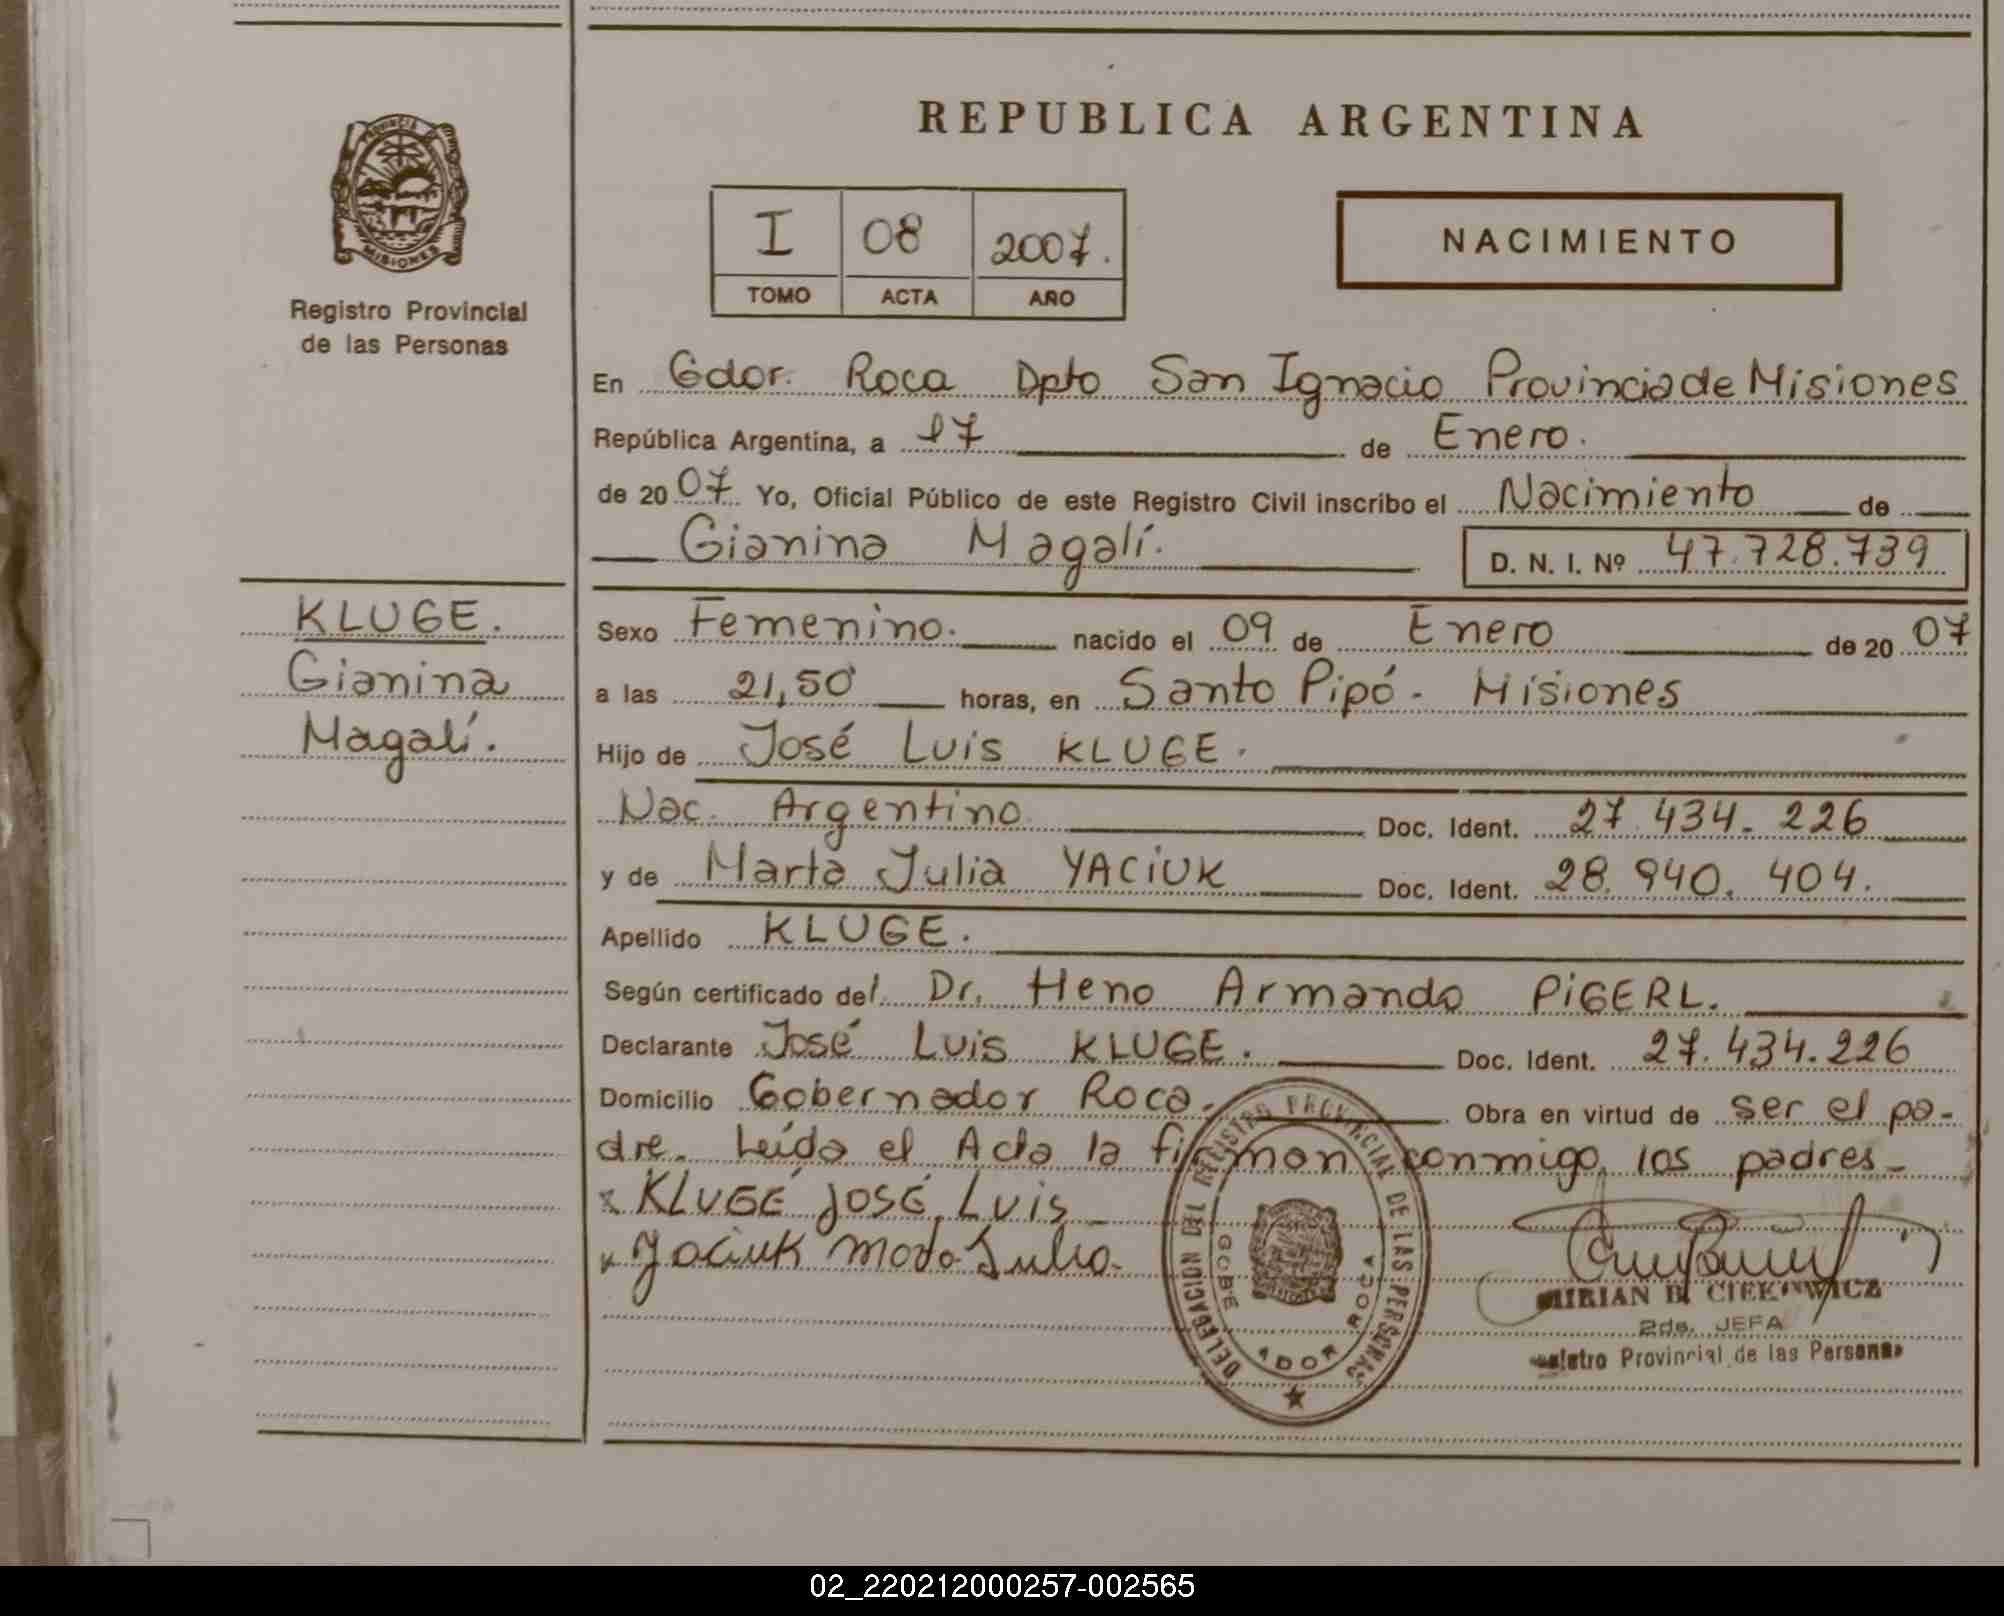 REPUBLICA ARGENTINA
PROVINCIA
MISIONES
Registro Provincial
de las Personas
I 08 2007.
TOMO ACTA AÑO
NACIMIENTO
En Gdor. Roca Dpto San Ignacio Provincia de Misiones
República Argentina, a 17 de Enero.
de 20 07 Yo, Oficial Público de este Registro Civil inscribo el Nacimiento de
Gianina Magalí. D. N. I. Nº 47.728.739
KLUGE.
Gianina
Magalí.
Sexo Femenino. nacido el 09 de Enero de 20 07
a las 21,50 horas, en Santo Pipó - Misiones
Hijo de José Luis KLUGE.
Nac. Argentino Doc. Ident. 27.434.226
y de Marta Julia YACIUK Doc. Ident. 28.940.404.
Apellido KLUGE.
Según certificado del Dr. Heno Armando PIGERL.
Declarante José Luis KLUGE. Doc. Ident. 27.434.226
Domicilio Gobernador Roca. Obra en virtud de ser el pa-
dre. Leída el Acta la firman conmigo los padres-
x KLUGE JOSÉ LUIS
x Yaciuk Marta Julia.
DELEGACION DEL REGISTRO PROVINCIAL DE LAS PERSONAS
GOBERNADOR ROCA
MIRIAN B. CIEKOWICZ
2da. JEFA
Registro Provincial de las Personas
02_220212000257-002565